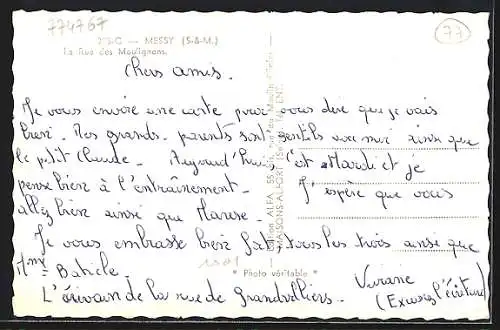 774767
77
2 S.C — MESSY (S.-&-M.)
La Rue des Mouligneaux
Chers amis.
Je vous envoie une carte pour vous dire que je vais
bien. Mes grands-parents sont gentils avec moi ainsi que
le petit Claude. Aujourd'hui, c'est Mardi et je
pense bien à l'entraînement. J'espère que vous
allez bien ainsi que Marise.
Je vous embrasse bien fort, tous les trois ainsi que
Mme Bahile. Viviane
L'écrivain de la rue de Grandvilliers. (Excusez l'écriture)
* Photo véritable *